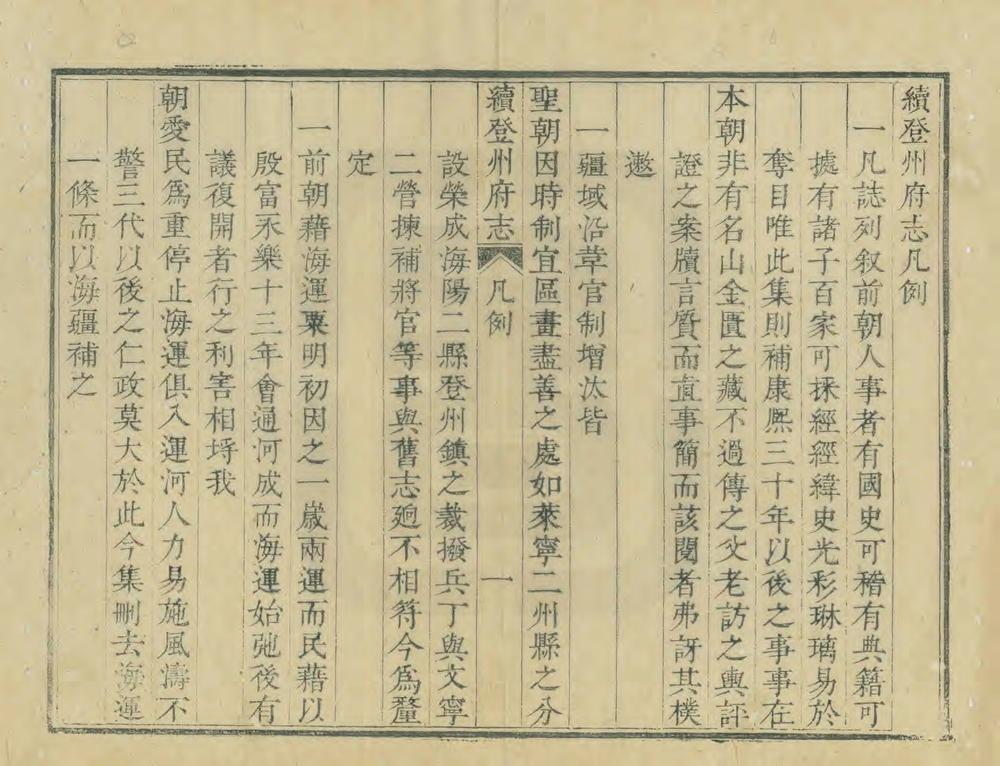 續登州府志凡例
一凡誌列叙前朝人事者有國史可稽有典籍可
據有諸子百家可採經經緯史光彩琳璃易於
奪目唯此集則補康熙三十年以後之事事在
本朝非有名山金匱之藏不過傳之父老訪之輿評
證之案牘言質而直事簡而該閱者弗訝其樸
遬
一疆域沿革官制增汰皆
聖朝因時制宜區畫盡善之處如萊寧二州縣之分
續登州府志 凡例 一
設榮成海陽二縣登州鎮之裁撥兵丁與文寧
二營揀補將官等事與舊志迥不相符今為釐
定
一前朝藉海運粟明初因之一歲兩運而民藉以
殷富永樂十三年會通河成而海運始弛後有
議復開者行之利害相埓我
朝愛民爲重停止海運俱入運河人力易施風濤不
警三代以後之仁政莫大於此今集刪去海運
一條而以海疆補之